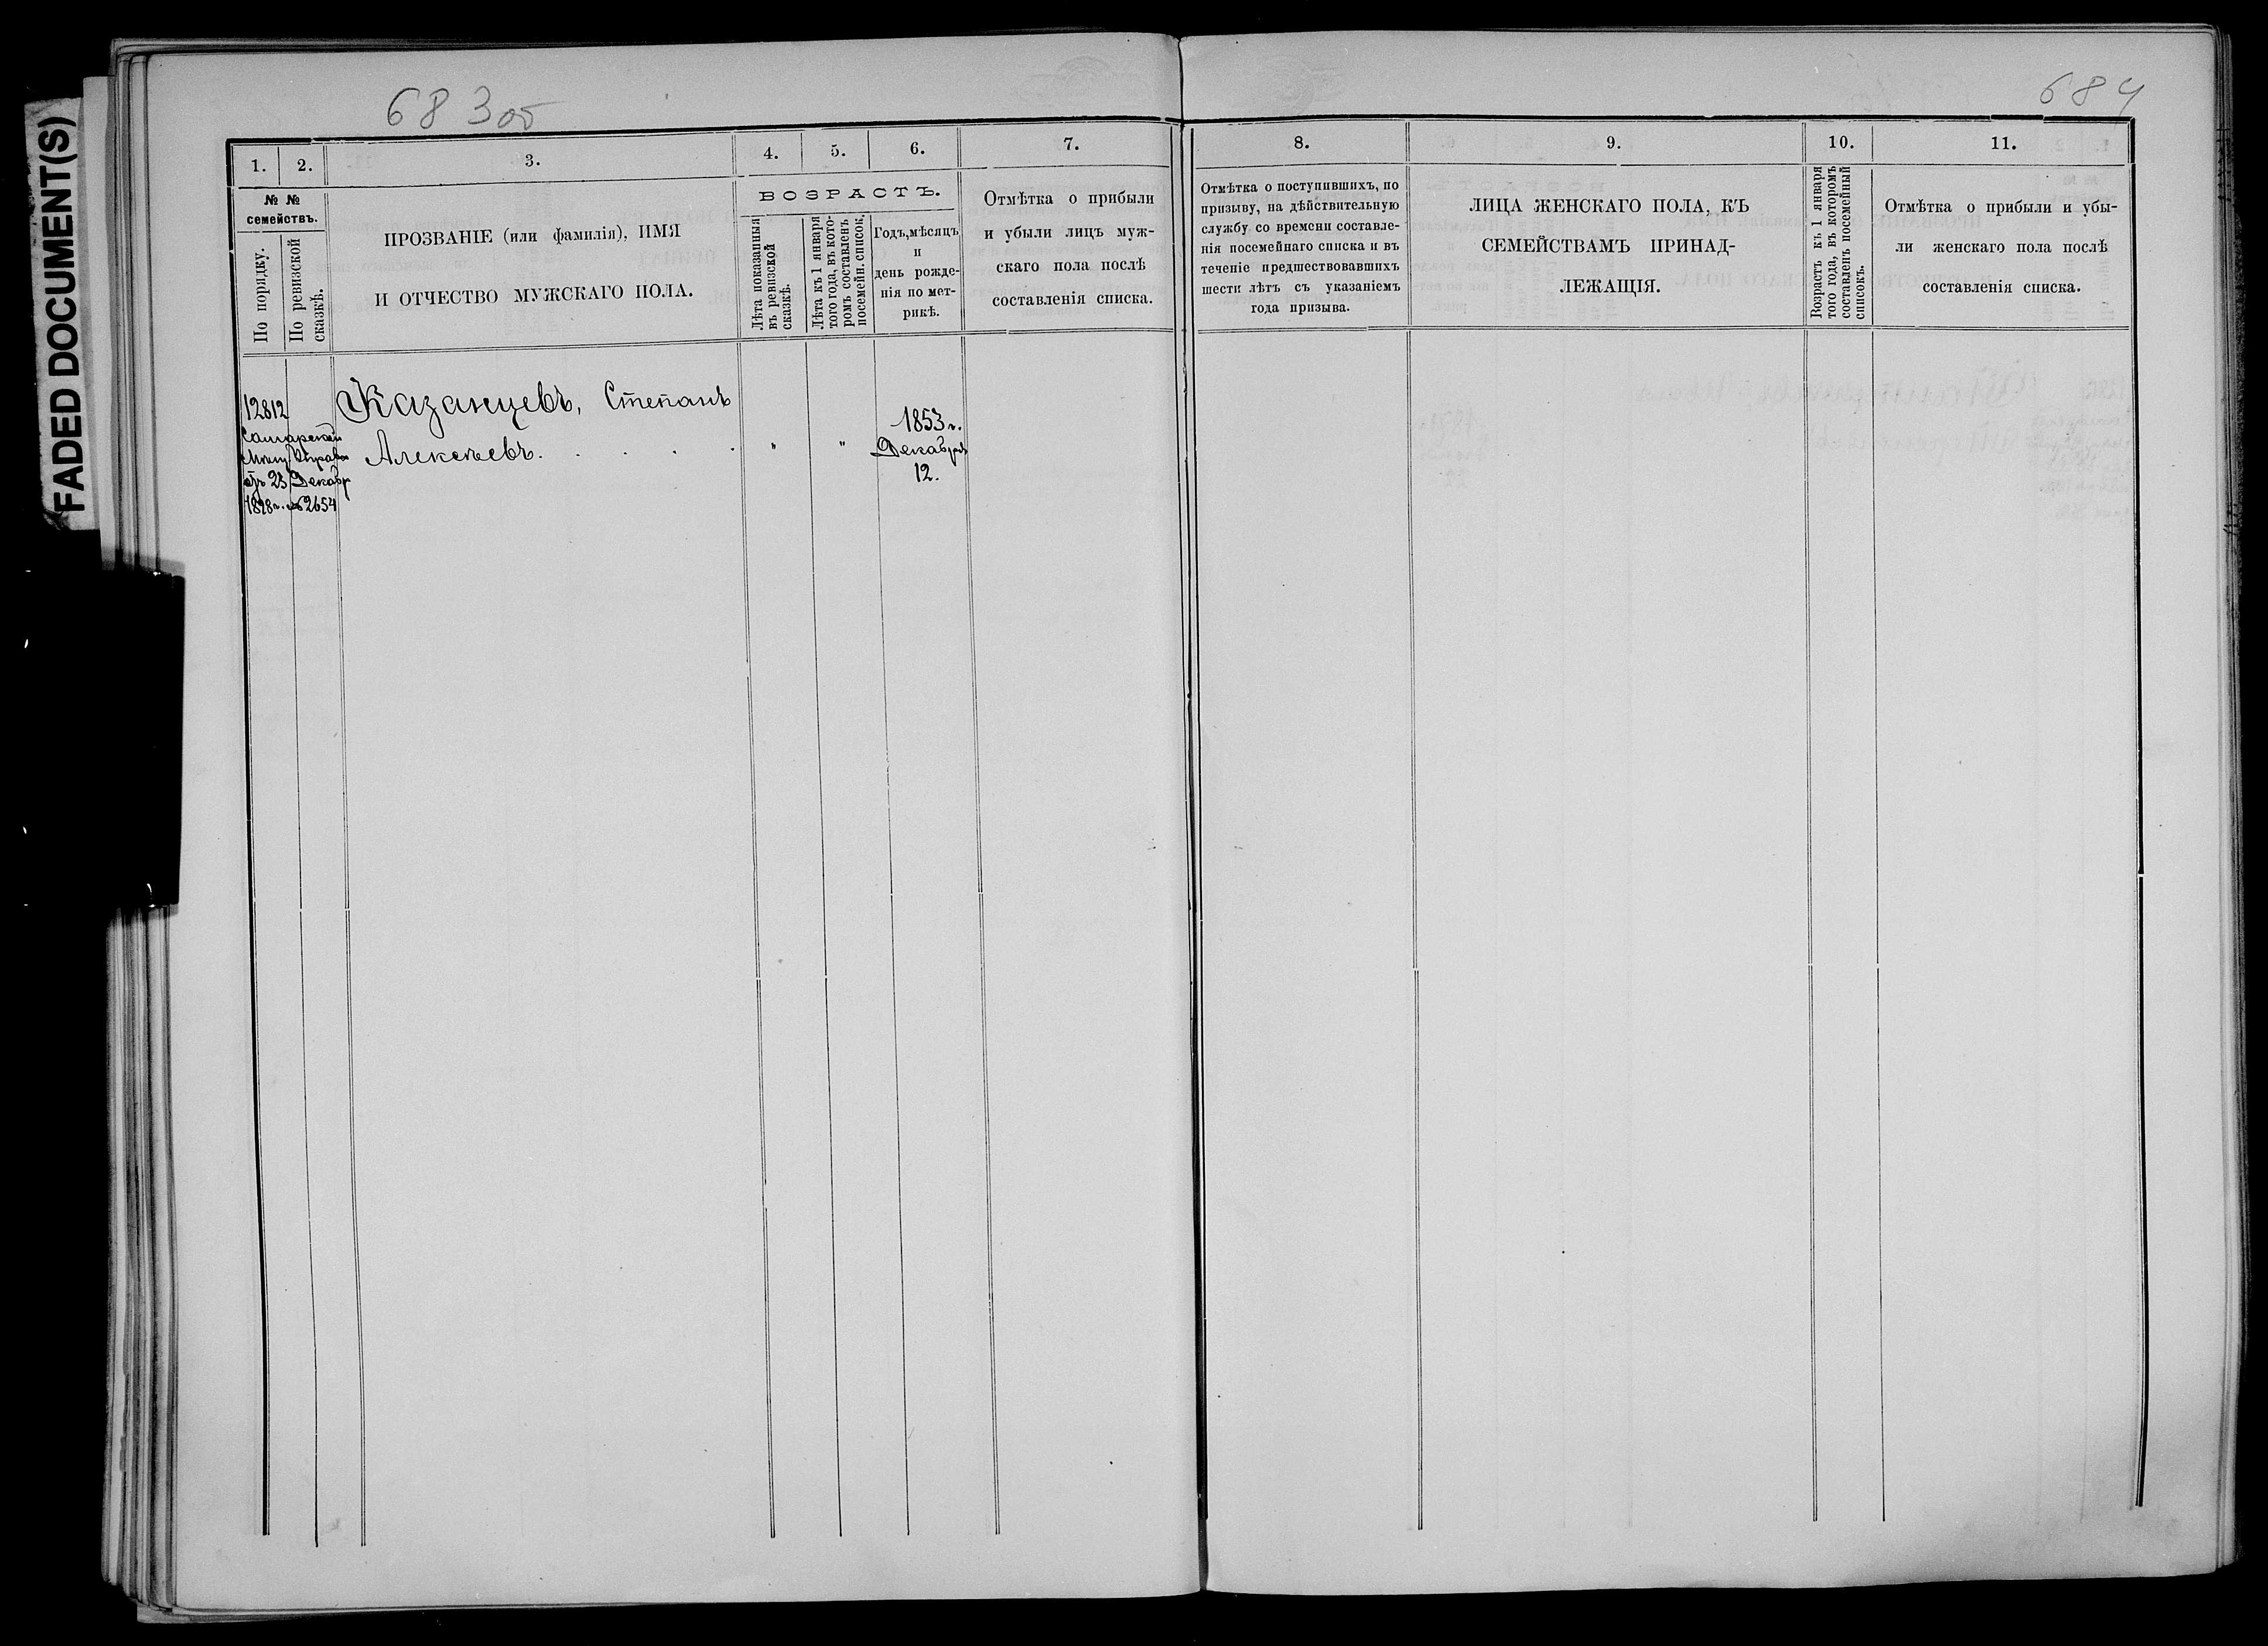 FADED DOCUMENT(S)
683об
684
1. 2. 3. 4. 5. 6. 7.
№ №
семействъ.
По порядку.
По ревизской
сказкѣ.
ПРОЗВАНІЕ (или фамилія), ИМЯ
И ОТЧЕСТВО МУЖСКАГО ПОЛА.
ВОЗРАСТЪ.
Лѣта показанныя
въ ревизской
сказкѣ.
Лѣта къ 1 января
того года, въ кото-
ромъ составленъ
посемейн. список.
Годъ, мѣсяцъ
и
день рожде-
нія по мет-
рикѣ.
Отмѣтка о прибыли
и убыли лицъ муж-
скаго пола послѣ
составленія списка.
8. 9. 10. 11.
Отмѣтка о поступившихъ, по
призыву, на дѣйствительную
службу со времени составле-
нія посемейнаго списка и въ
теченіе предшествовавшихъ
шести лѣтъ съ указаніемъ
года призыва.
ЛИЦА ЖЕНСКАГО ПОЛА, КЪ
СЕМЕЙСТВАМЪ ПРИНАД-
ЛЕЖАЩІЯ.
Возрастъ къ 1 января
того года, въ которомъ
составленъ посемейный
списокъ.
Отмѣтка о прибыли и убы-
ли женскаго пола послѣ
составленія списка.
12812
Самарской
Мѣщ. Управы
отъ 23 Декабр
1898 г. № 2654
Казанцевъ, Степанъ
Алексѣевъ. . . . . " "
1853 г.
Декабря
12.